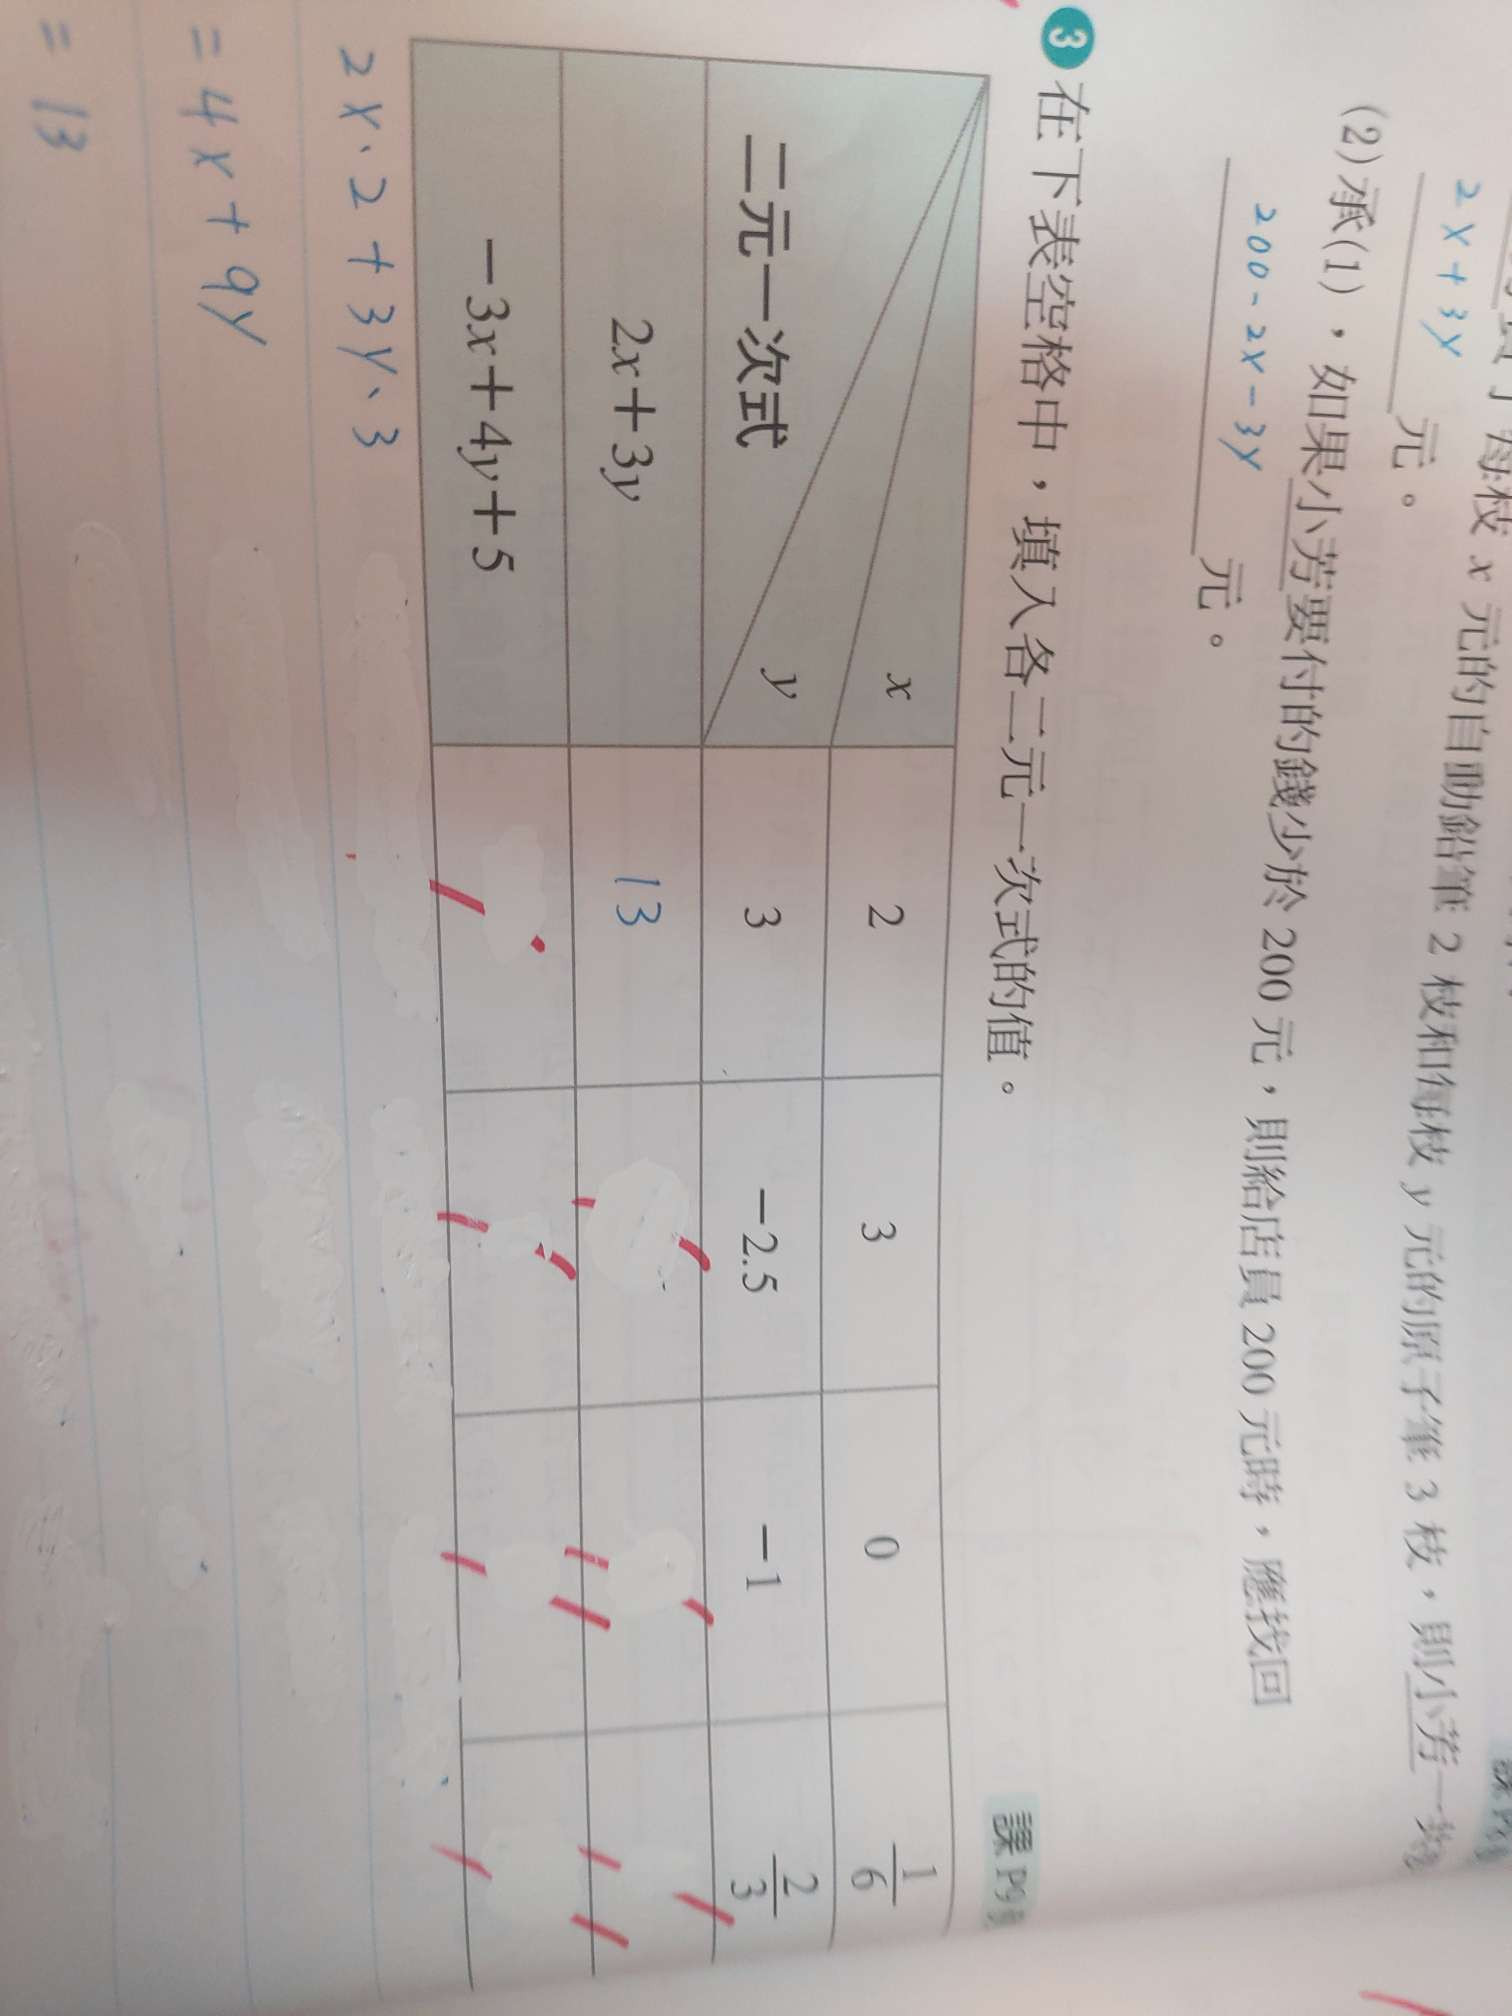 每枝 x 元的自動鉛筆 2 枝和每枝 y 元的原子筆 3 枝，則小芳一共
2x+3y 元。
(2)承(1)，如果小芳要付的錢少於 200 元，則給店員 200 元時，應找回
200-2x-3y 元。
3 在下表空格中，填入各二元一次式的值。
課P9
x 2 3 0 1/6
二元一次式 y 3 −2.5 −1 2/3
2x＋3y 13
−3x＋4y＋5
2x·2+3y·3
=4x+9y
=13